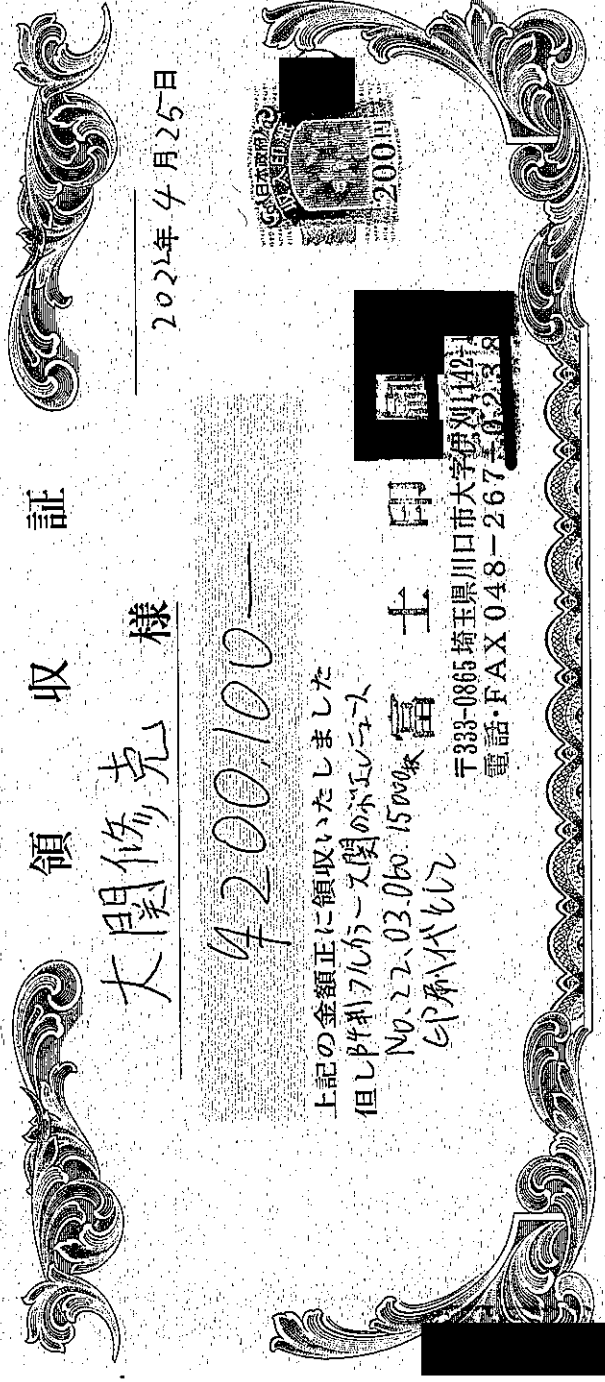 領収証
2022年4月25日
大関修克 様
¥200,100—
上記の金額正に領収いたしました
但しB4判フルカラー大関の市政ニュース
No.22.03.060 15000枚
印刷代として
日本政府
200円
富士印
〒333-0865 埼玉県川口市大字伊刈1142-1
電話・FAX 048-267-0238